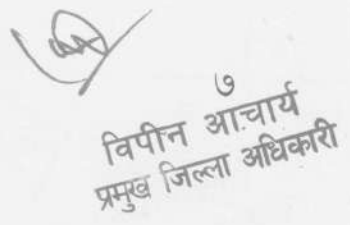 ७
विपीन आचार्य
प्रमुख जिल्ला अधिकारी